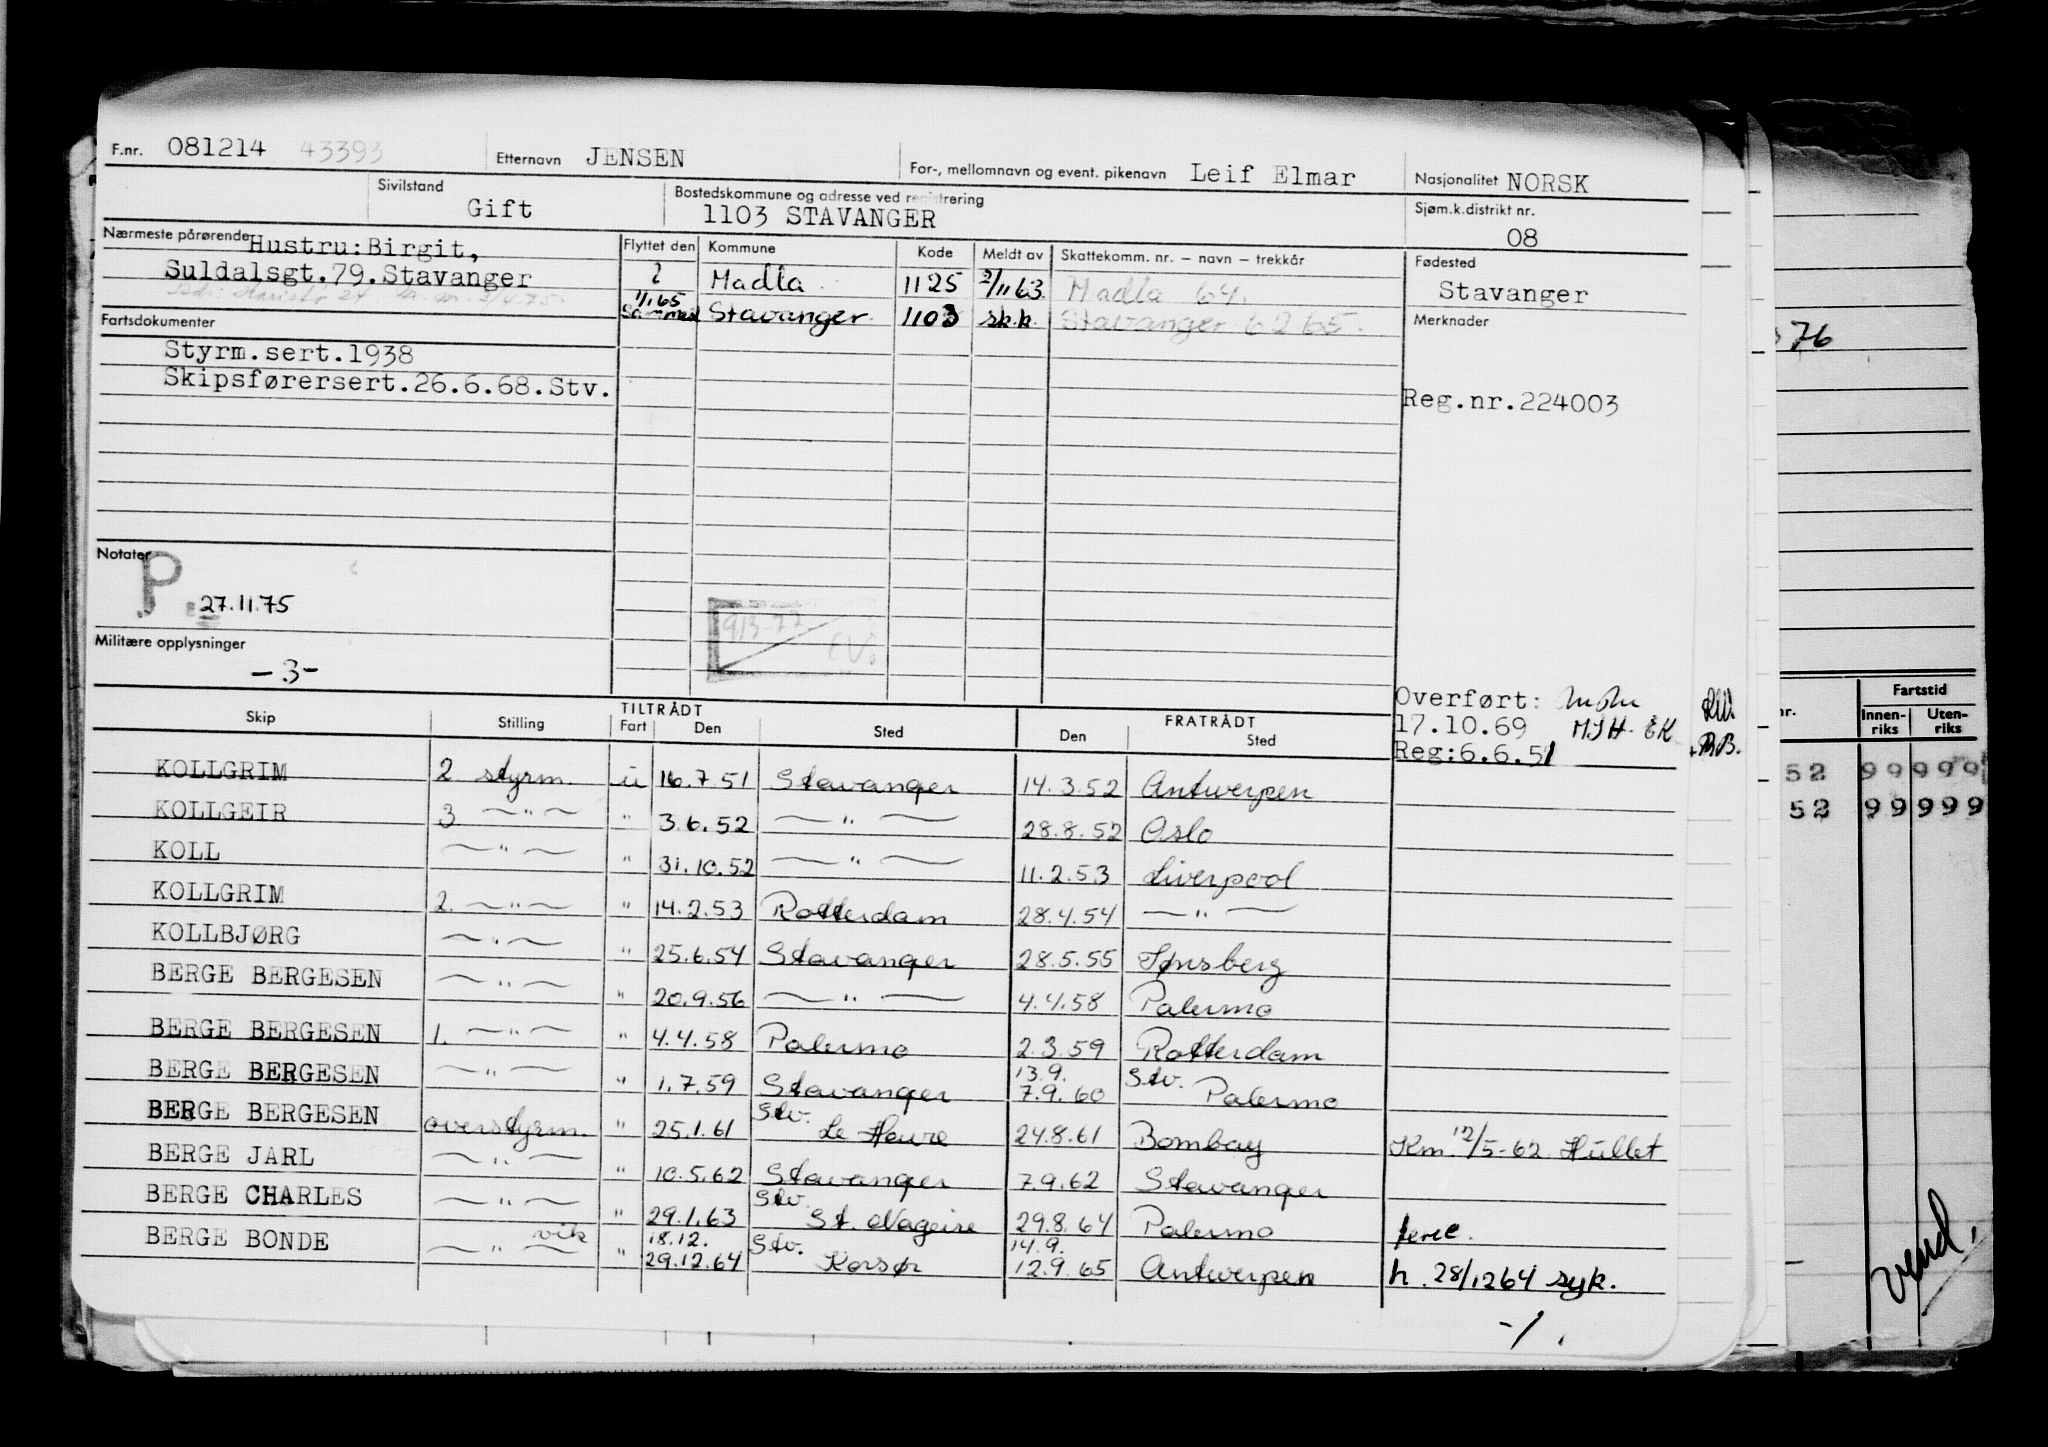 F.nr. 081214 43393 Etternavn JENSEN For-, mellomnavn og event. pikenavn Leif Elmar Nasjonalitet NORSK
Sivilstand Gift Bostedskommune og adresse ved registrering 1103 STAVANGER Sjøm.k.distrikt nr. 08
Nærmeste pårørende Hustru:Birgit, Flyttet den Kommune Kode Meldt av Skattekomm. nr. – navn – trekkår Fødested
Suldalsgt.79.Stavanger ? Madla 1125 2/11 63. Madla 64. Stavanger
1/1 65 Stavanger. 1103 sk.k. Stavanger 6265.
Fartsdokumenter Merknader
Styrm.sert.1938
Skipsførersert.26.6.68.Stv. Reg.nr.224003
76
Notater
P.
27.11.75
Militære opplysninger
-3-
Overført:
17.10.69 MJH. EK
Reg:6.6.51
TILTRÅDT FRATRÅDT
Skip Stilling Fart Den Sted Den Sted
nr. Fartstid
Innen-riks Uten-riks
52 99999
52 99999
KOLLGRIM 2 styrm. u 16.7.51 Stavanger 14.3.52 Antwerpen
KOLLGEIR 3 —"— " 3.6.52 —"— 28.8.52 Oslo
KOLL —"— " 31.10.52 —"— 11.2.53 Liverpool
KOLLGRIM 2. —"— " 14.2.53 Rotterdam 28.4.54 —"—
KOLLBJØRG —"— " 25.6.54 Stavanger 28.5.55 Tønsberg
BERGE BERGESEN —"— " 20.9.56 —"— 4.4.58 Palermo
BERGE BERGESEN 1. —"— " 4.4.58 Palermo 2.3.59 Rotterdam
BERGE BERGESEN —"— " 1.7.59 Stavanger 13.9. 7.9.60 Stv. Palermo
BERGE BERGESEN overstyrm. " 25.1.61 Stv. Le Havre 24.8.61 Bombay Km. 12/5-62 Hullet
BERGE JARL —"— " 10.5.62 Stavanger 7.9.62 Stavanger
BERGE CHARLES —"— " 29.1.63 Stv. St. Nazaire 29.8.64 Palermo ferie.
BERGE BONDE —"— vik " 18.12. 29.12.64 Stv. Korsør 14.9. 12.9.65 Antwerpen h. 28/12 64 syk.
-/.
Vend.